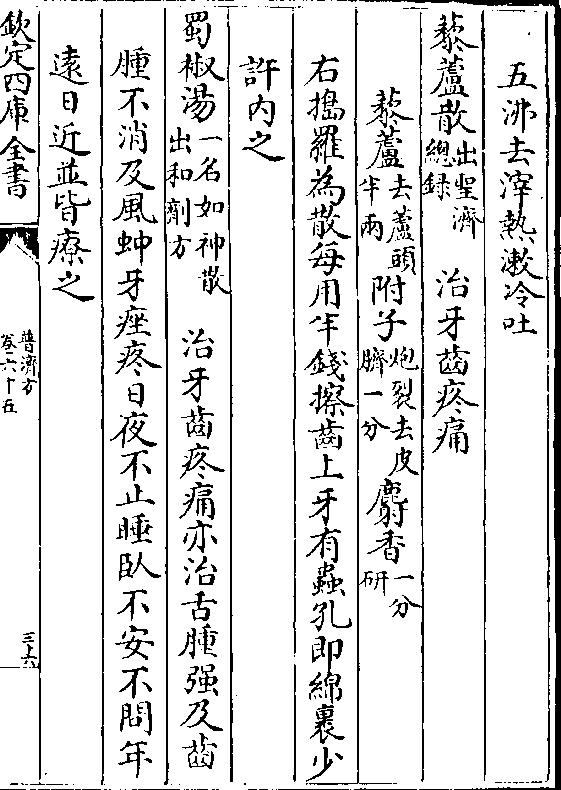 五沸去滓熱漱冷吐
藜蘆散出聖濟總錄　治牙齒疼痛
藜蘆去蘆頭半兩　附子炮裂去皮臍一分　麝香一分研
右搗羅為散每用半錢擦齒上牙有蟲孔即綿裹少
許内之
蜀椒湯一名如神散出和劑方　治牙齒疼痛亦治舌腫强及齒
腫不消及風蚛牙痤疼日夜不止睡臥不安不問年
遠日近並皆療之
欽定四庫全書
普濟方
卷六十五
三十六